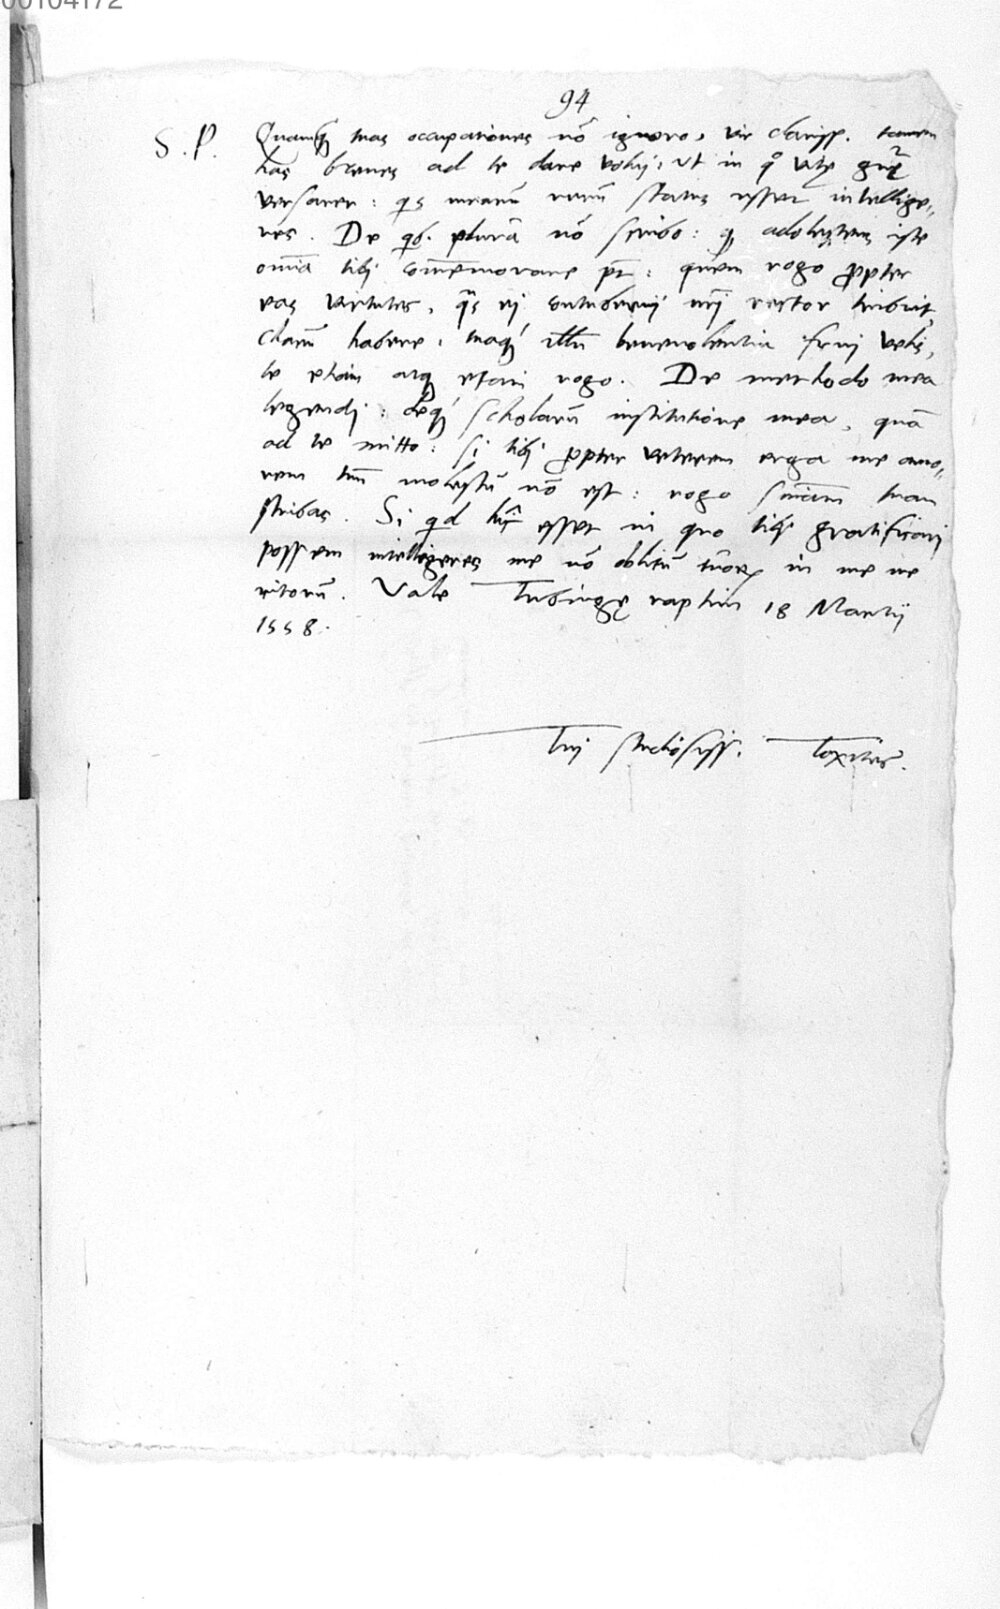 00104172
94
S. P. Quamq̃ tuas occupationes nō ignoro, vir clariss. tamen
has breues ad te dare volui; vt in q° vitę gñe
versarer: q̃s mearū rerū status esset intellige„
res. De qb. plura nō scribo: q adolescens iste
omnia tibi commemorare pt: quem rogo ꝓpter
eas virtutes, q̃s ei contubernij nrj rector tribuit,
charū habere, tuaq́ illū beneuolentia frui velis,
te etiam atq etiam rogo. De methodo mea
legendi: deq́ scholarū institutione mea, quā
ad te mitto: si tibi ꝓpter veterem erga me amo„
rem tuū molestū nō est: rogo snīam tuam
scribas. Si qd hic esset in quo tibi gratificari
possem intelligeres me nō oblitū tuoꝝ in me me
ritorū. Vale Tubingę raptim 18 Martij
1558.
Tui studiosiss. Toxites.